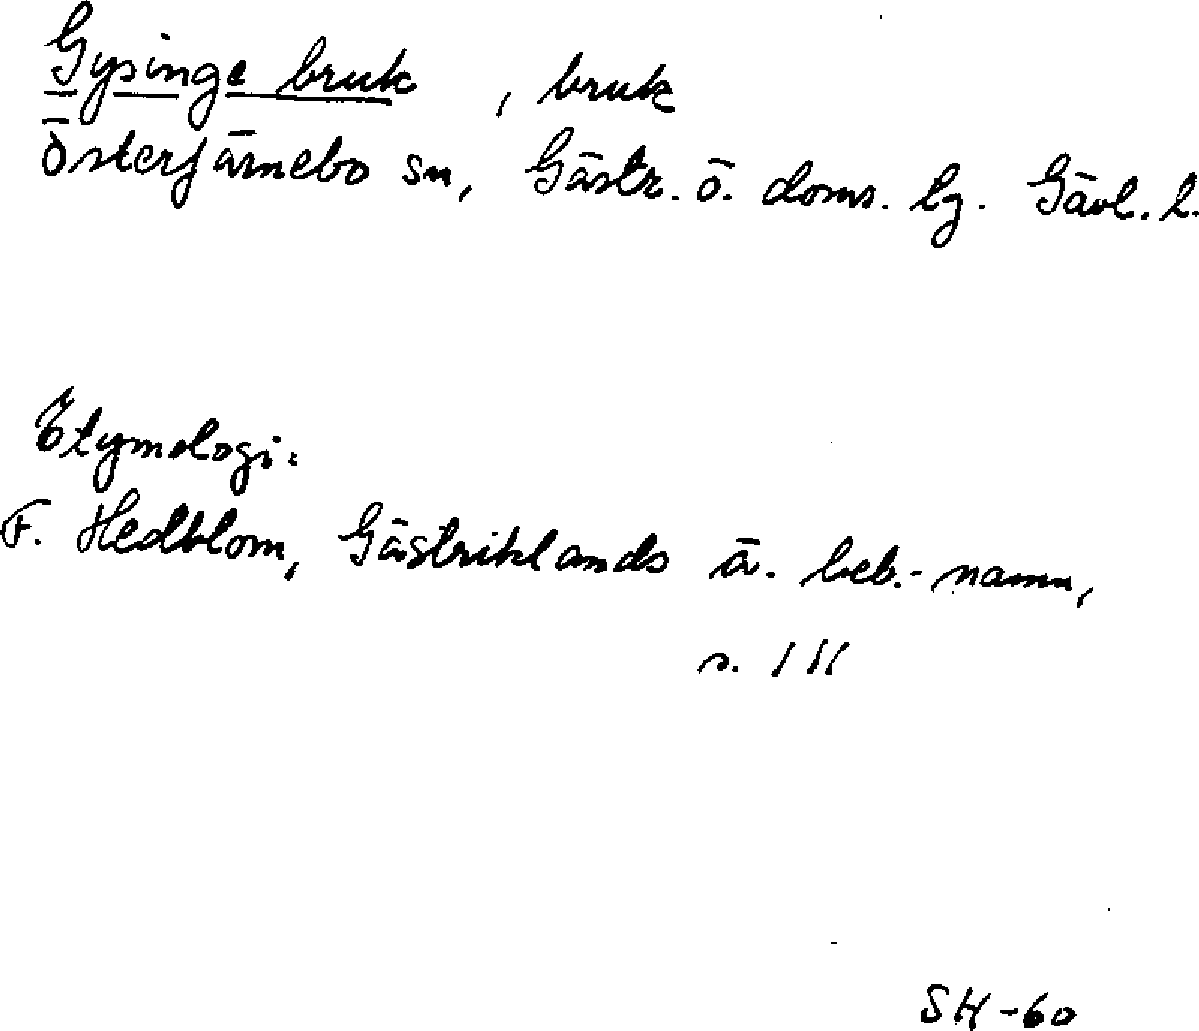 Gysinge bruk, bruk
Österfärnebo sn, Gästr. ö. doms. lg. Gävl. l.
Etymologi:
F. Hedblom, Gästriklands ä. beb.-namn,
s. 111
SH-60